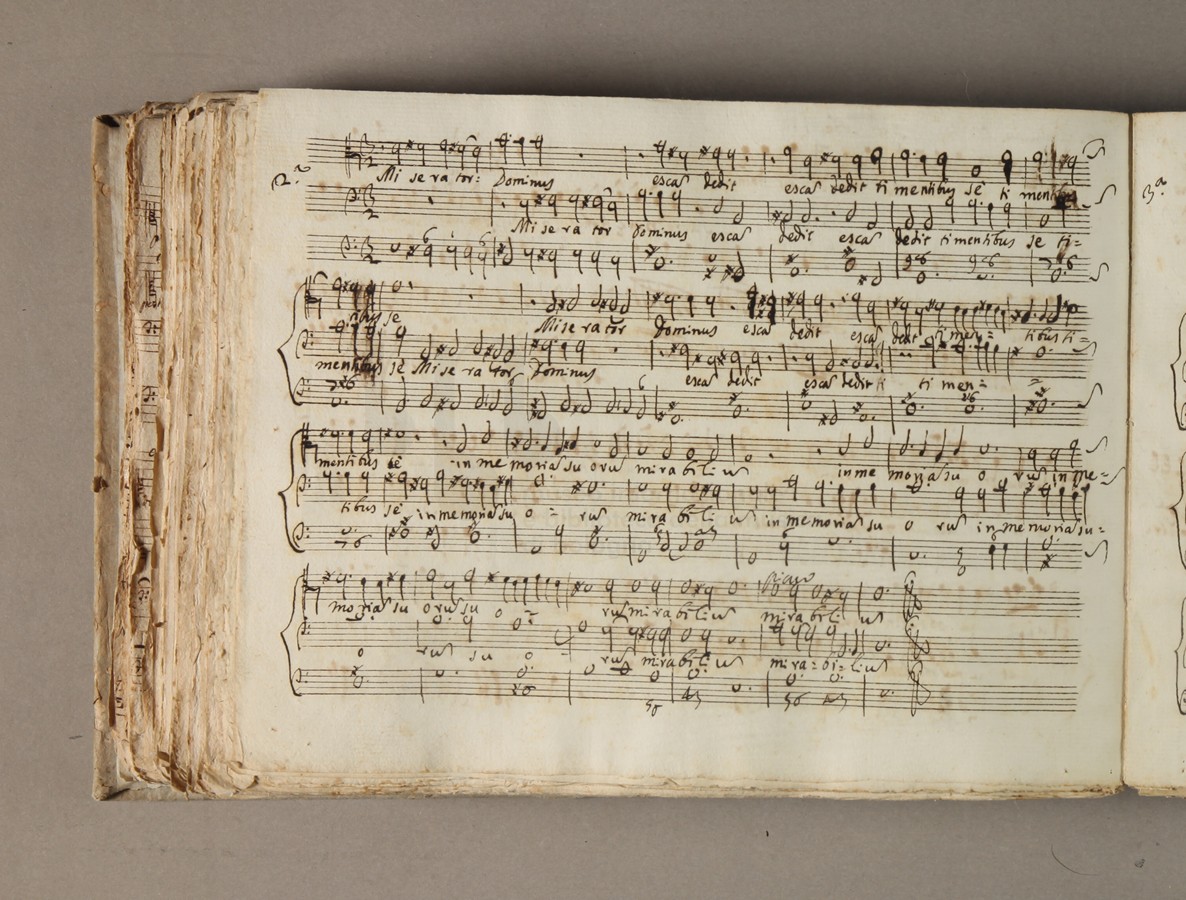 2.a
Mi se ra tor: Dominus escas dedit escas dedit ti mentibus se ti mentibus
Mi se ra tor Dominus escas dedit escas dedit timentibus se ti=
tibus se Mi se ra tor Dominus escas dedit escas dedit ti men= tibus ti=
mentibus se Mi se ra tor Dominus escas dedit escas dedit ti ti men=
mentibus se in me moriam su orum mirabilium in me moriam su o rum in me=
tibus se in memoriam su o = rum mira bi li um in memoriam su o rum in memoriam su=
moriam su orum su o = rum mirabilium mirabili um
piano
o rum su o rum mirabilium mira=bi=lium
3.a